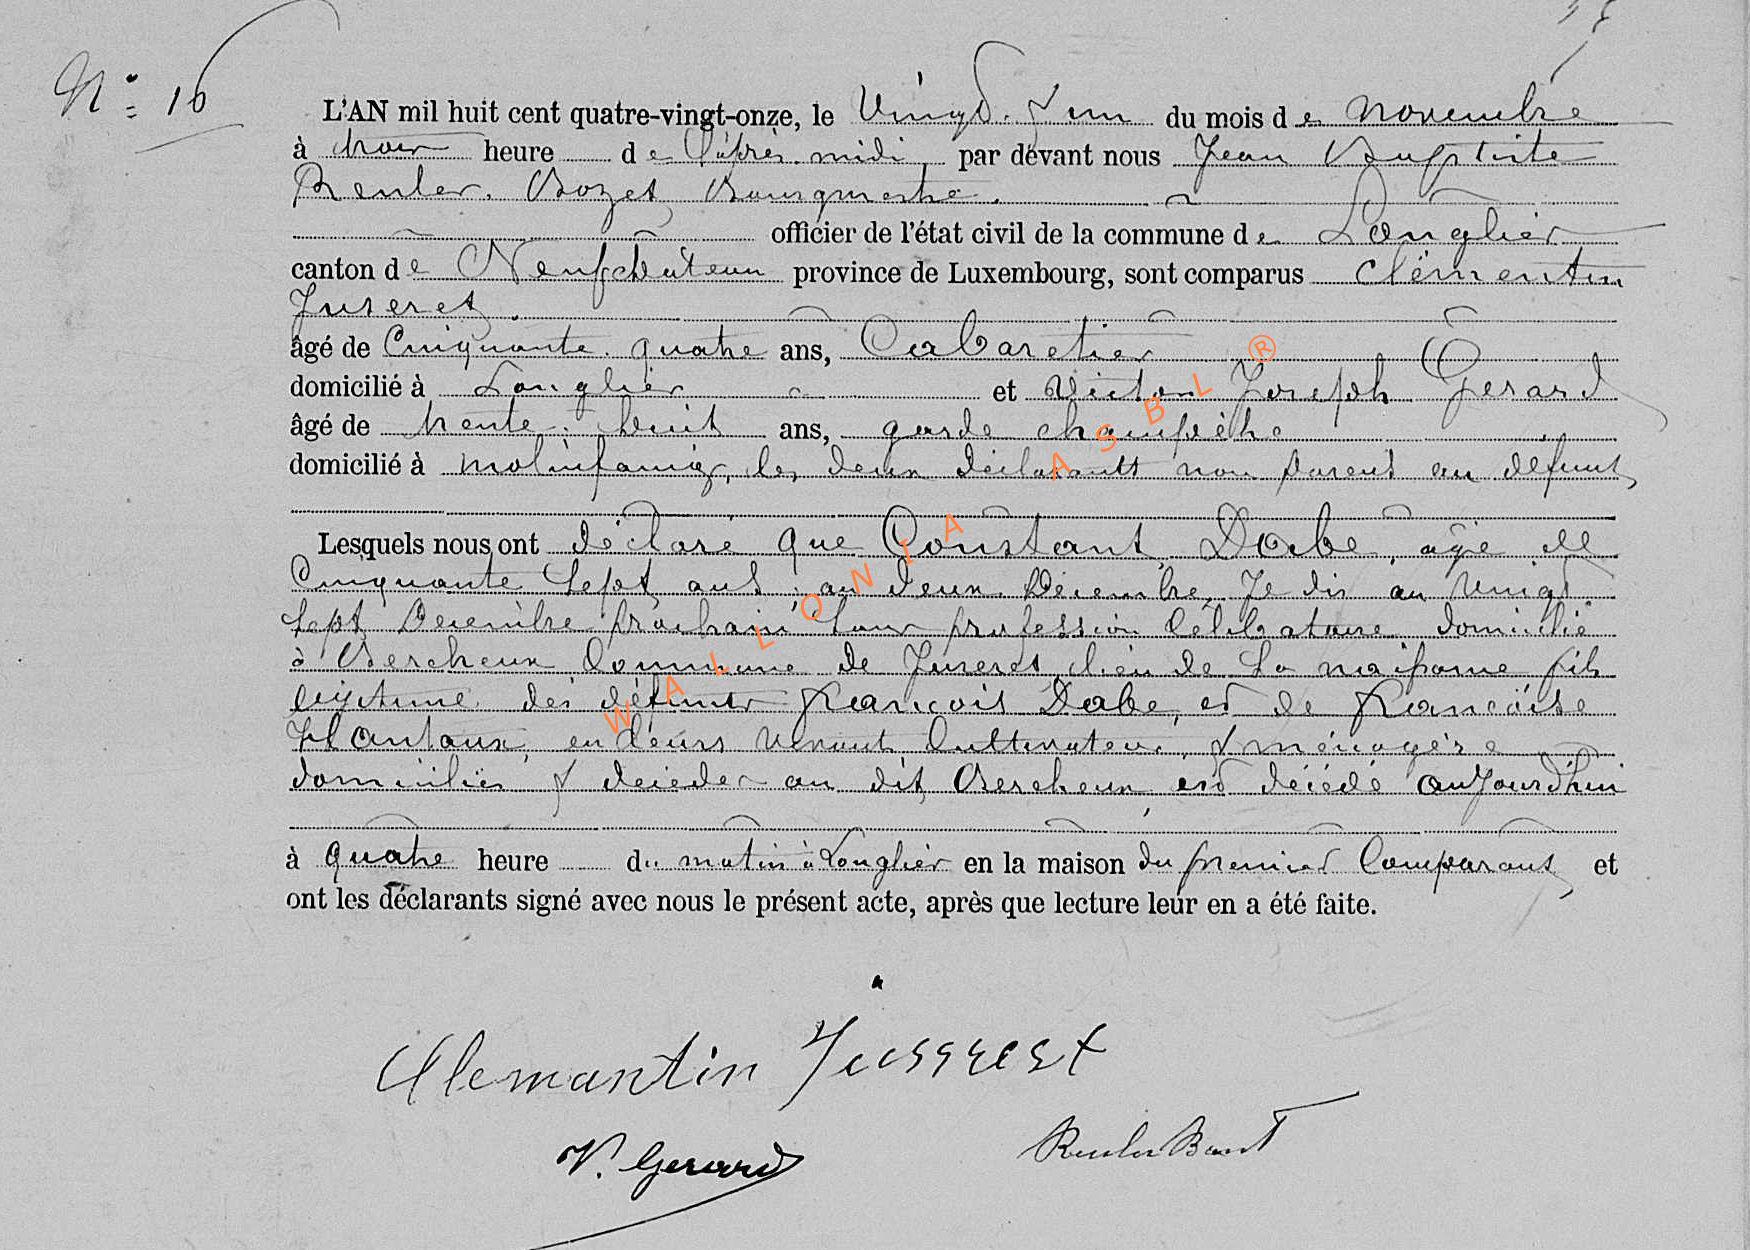 N° 16
L'AN mil huit cent quatre-vingt-onze, le Vingt & un du mois de Novembre
à trois heure de l'après midi, par devant nous Jean Baptiste
Renler. Bozet Bourgmestre.
officier de l'état civil de la commune de Longlier
canton de Neufchateau province de Luxembourg, sont comparus Clémentin
Juseret.
âgé de Cinquante. quatre ans, Cabaretier
domicilié à Longlier et Victor Joseph Gerard
âgé de trente. huit ans, garde champêtre
domicilié à molinfaing, les deux déclarants non parent au défunt
Lesquels nous ont déclaré que Constant Dabe, agé de
Cinquante Sept ans, au deux Décembre, Je dis au Vingt
Sept Decembre prochain, sans profession Célibataire domicilié
à Bercheux Commune de Juseret, lieu de Sa naissance, fils
légitime des défunts François Dabe, et de Françoise
Hantaux, en leurs vivants Cultivateur, & ménagère
domiciliés & décédés au dit Bercheux, est décédé aujourd'hui
à quatre heure du matin à Longlier en la maison du premier Comparant, et
ont les déclarants signé avec nous le présent acte, après que lecture leur en a été faite.
Clemantin Jussrest
V. Gerard
WALLONIA ASBL ®